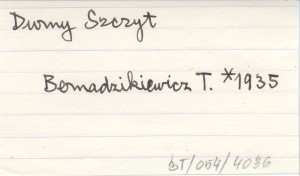 Durny Szczyt
Bernadzikiewicz T. *1935
BT/054/4036